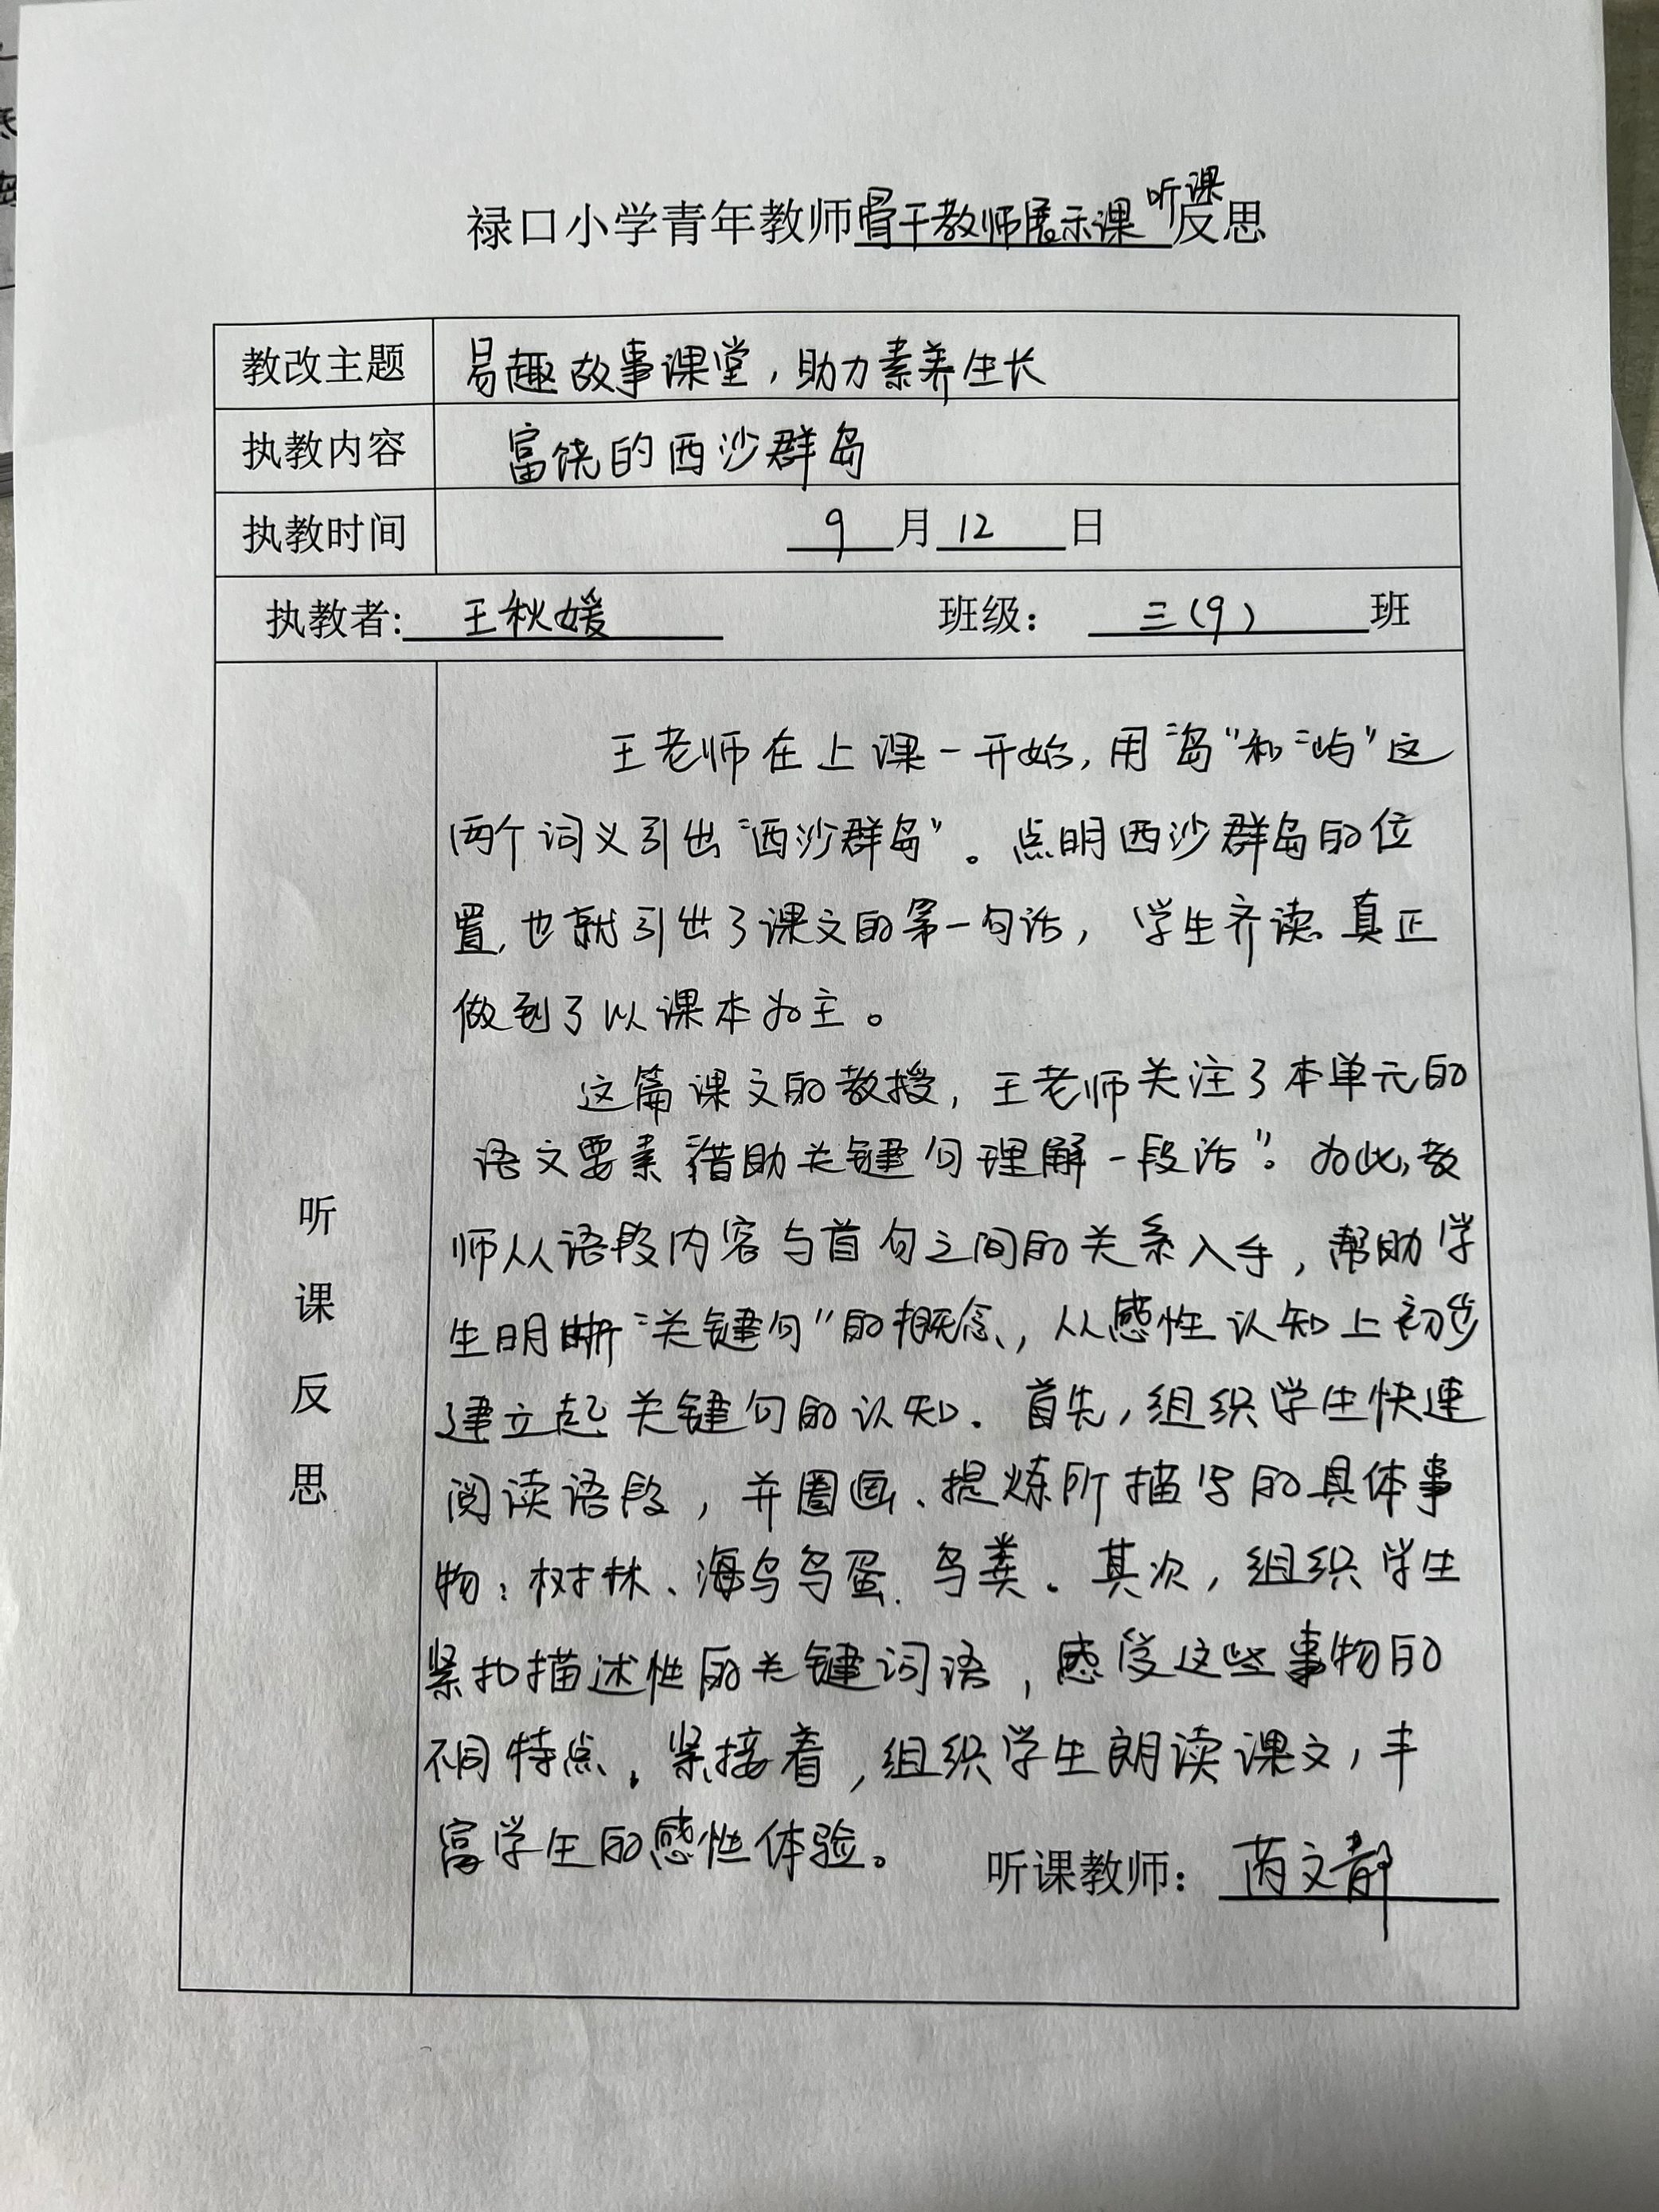 禄口小学青年教师骨干教师展示课听课反思
教改主题 易趣故事课堂，助力素养生长
执教内容 富饶的西沙群岛
执教时间 9月12日
执教者：王秋媛 班级：三（9）班
听课反思
王老师在上课一开始，用“岛”和“屿”这
两个词义引出“西沙群岛”。点明西沙群岛的位
置，也就引出了课文的第一句话，学生齐读，真正
做到了以课本为主。
这篇课文的教授，王老师关注了本单元的
语文要素“借助关键句理解一段话”。为此，教
师从语段内容与首句之间的关系入手，帮助学
生明晰“关键句”的概念，从感性认知上初步
建立起关键句的认知。首先，组织学生快速
阅读语段，并圈画、提炼所描写的具体事
物：树林、海鸟鸟蛋、鸟粪。其次，组织学生
紧扣描述性的关键词语，感受这些事物的
不同特点。紧接着，组织学生朗读课文，丰
富学生的感性体验。
听课教师：芮文静